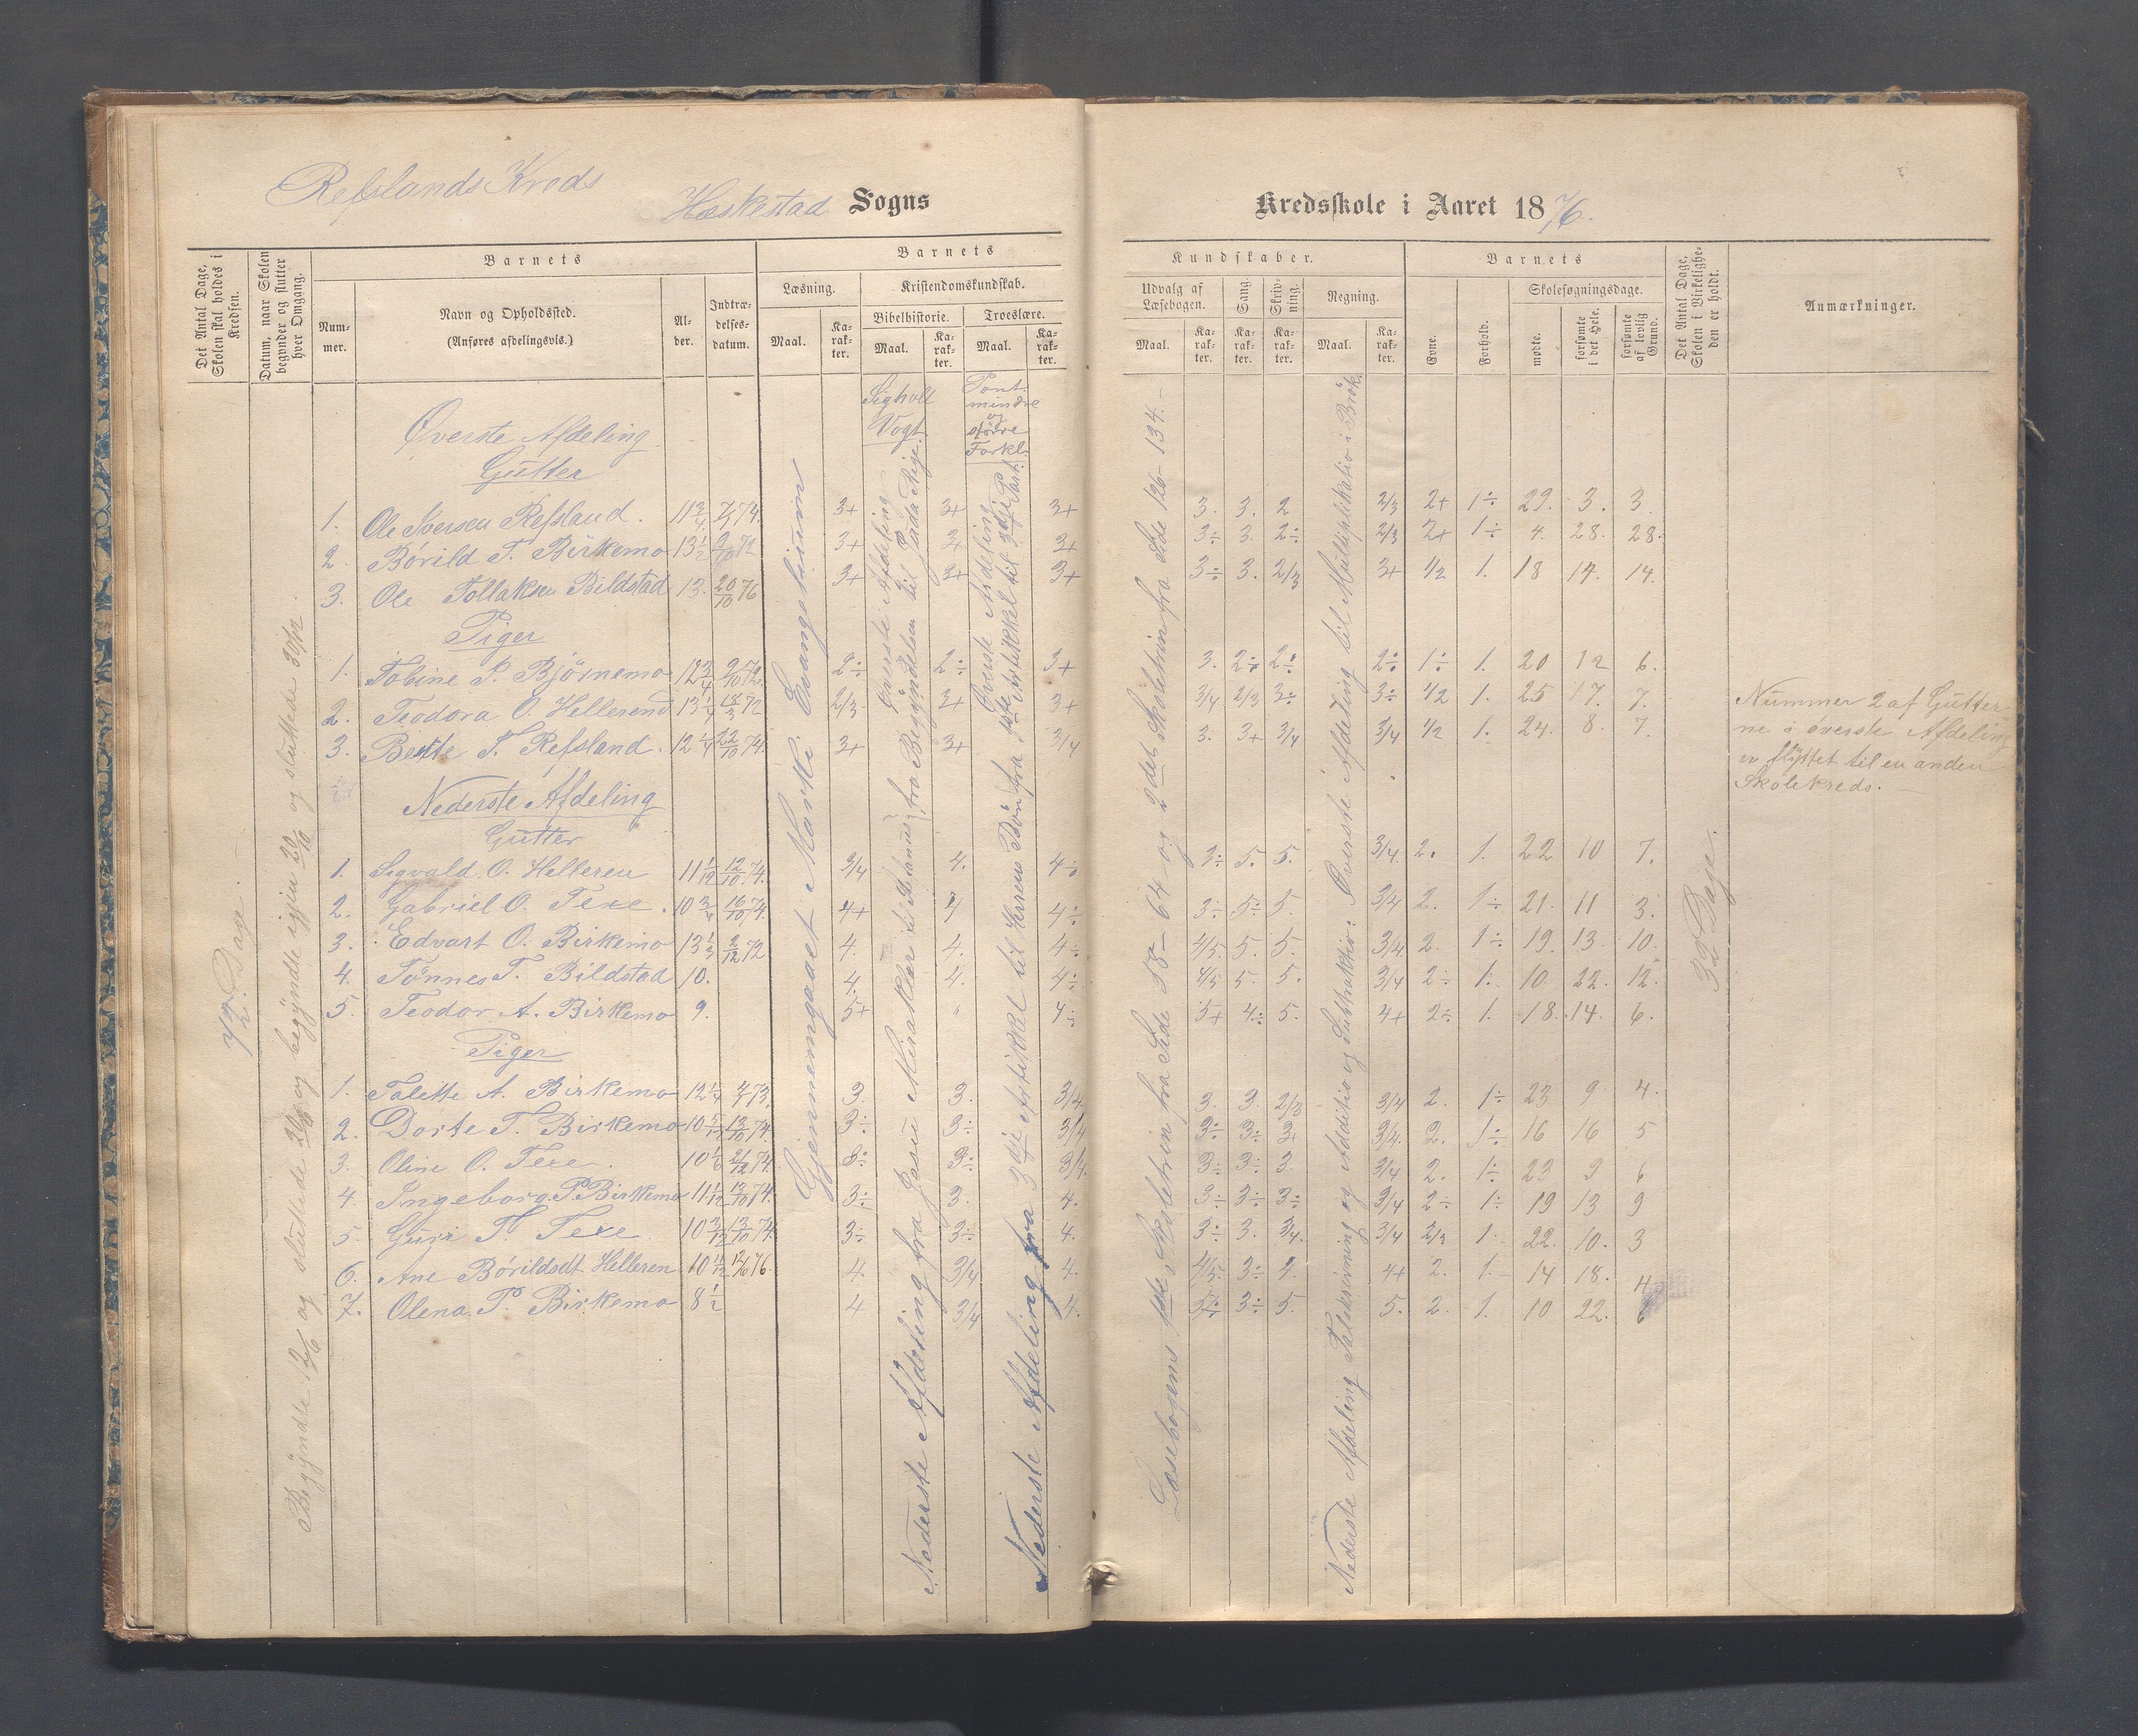 Refslands Kreds
Heskestad Sogns
Kredsskole i Aaret 1876.
Det Antal Dage, Skolen skal holdes i Kredsen.
Datum, naar Skolen begynder og slutter hver Omgang.
Barnets
Barnets
Kundskaber.
Barnets
Det Antal Dage, Skolen i Virkeligheden er holdt.
Anmærkninger.
Nummer.
Navn og Opholdssted.
(Anføres afdelingsvis.)
Alder.
Indtrædelsesdatum.
Læsning.
Kristendomskundskab.
Bibelhistorie.
Troeslære.
Udvalg af Læsebogen.
Sang.
Skrivning.
Regning.
Evne.
Forhold.
Skolesøgningsdage.
mødte.
forsømte i det Hele.
forsømte af lovlig Grund.
Maal.
Karakter.
Maal.
Karakter.
Maal.
Karakter.
Maal.
Karakter.
Karakter.
Karakter.
Maal.
Karakter.
Vogt.
Pont.
mindre
og
større
Forkl.
Øverste Afdeling
Gutter
1. Ole Iversen Refsland. 11 3/4 74. 3+ 3+ 3+ 3. 3. 2 2/3 2+ 1÷ 29. 3. 3.
2. Børild T. Birkemo 13 1/2 72 3+ 3+ 3+ 3÷ 3. 2÷ 2/3 2+ 1÷ 4. 28. 28.
3. Ole Tollaksen Bildstad 13. 20/10 76 3+ 3+ 3+ 3÷ 3. 2/3 3+ 1/2 1. 18 14. 14.
Piger
1. Tobine P. Bjørnemo 12 3/4 2/10 72. 2÷ 2÷ 3+ 3. 2÷ 2÷ 2÷ 1÷ 1. 20 12 6.
2. Teodora O. Helleren 13 1/4 18/3 72 2/3 3+ 3+ 3/4 2/3 3÷ 3÷ 1/2 1. 25 17. 7.
3. Berte T. Refsland. 12 1/4 22/10 74. 3+ 3+ 3/4 3. 3+ 3/4 3/4 1/2 1. 24. 8. 7.
Nederste Afdeling
Gutter
1. Sigvald O. Helleren 11 1/12 12/10 74. 3/4 4. 4÷ 3÷ 5. 5. 3/4. 2. 1. 22 10 7.
2. Gabriel O. Texe. 10 3/4 16/10 74. 4+ 4 4÷ 3÷ 5÷ 5. 3/4 2. 1÷ 21. 11 3.
3. Edvart O. Birkemo 13 1/3 2/12 72 4. 4. 4÷ 4/5. 5. 5. 3/4. 2. 1÷ 19. 13. 10.
4. Tønnes T. Bildstad 10. 4. 4. 4÷ 4/5 5. 5. 3/4 2÷ 1. 10. 22. 12.
5. Teodor A. Birkemo 9. 5+ " 4÷ 5+ 4÷ 5. 4+ 2÷ 1. 18. 14. 6.
Piger
1. Talette A. Birkemo 12 1/4 73. 3. 3. 3/4. 3. 3. 2/3 3/4 2. 1÷ 23 9 4.
2. Dorte T. Birkemo 10 5/12 13/10 74. 3÷ 3÷ 3/4 3÷ 3÷ 3+ 3/4. 2. 1÷ 16 16 5
3. Oline O. Texe. 10 1/6 21/12 74. 3÷ 3÷ 3/4. 3÷ 3÷ 3. 3/4 2. 1÷ 23 9 6
4. Ingeborg P. Birkemo 11 1/12 13/10 74. 3÷ 3. 4. 3÷ 3÷ 3÷ 3/4 2÷ 1÷ 19 13 9
5. Guri T. Texe 10 3/12 13/10 74. 3÷ 3÷ 4. 3÷ 3. 3/4. 3/4 2/3 1. 22. 10. 3
6. Ane Børildsdt. Helleren 10 11/12 12/6 76. 4. 3/4 4. 4/5. 3÷ 4. 4+ 2. 1. 14 18. 4
7. Olena P. Birkemo 8 1/2 4 3/4 4. 5÷ 3÷ 5. 5. 2. 1. 10 22. 6
Nummer 2 af Gutter-
ne i øverste Afdeling
er flyttet til en anden
Skolekreds.
72. Dage.
Begyndte 12/6 og sluttede og begyndte igjen 20/10 og sluttede
Gjennemgaaet Marki Evangelium
Øverste Afdeling fra Begyndelsen til Juda Rige.
Nederste Afdeling fra Jesu Mirakler til
Øverste Afdeling fra 1ste Artikkel til 3die Part.
Nederste Afdeling fra 3die Artikkel til Herrens Bøn
Læsebogens 1ste Skoletrin fra Side 58–64 og 2det Skoletrin fra Side 126–134.
Øverste Afdeling til Multiplikatio i Brøk.
Nederste Afdeling Talskrivning og Additio og Subtraktio.
32 Dage.